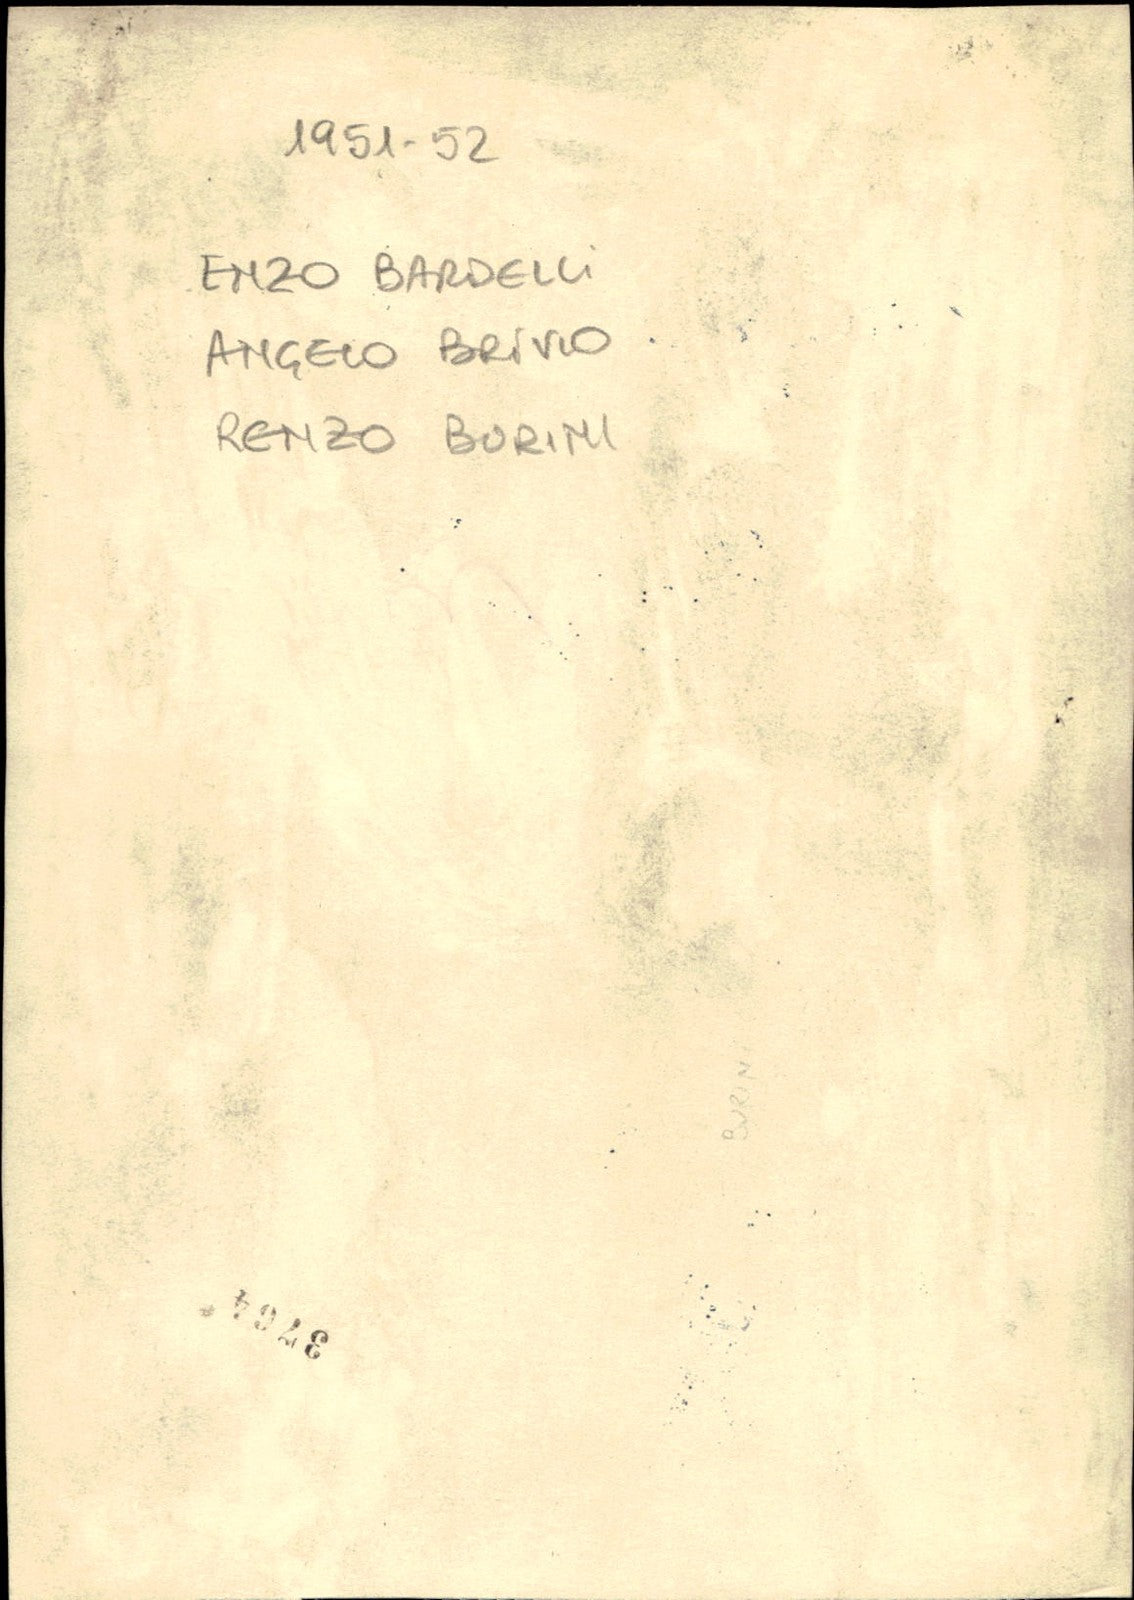 1951-52
ENZO BARDELLI
ANGELO BRIVIO
RENZO BURINI
BURINI
3764